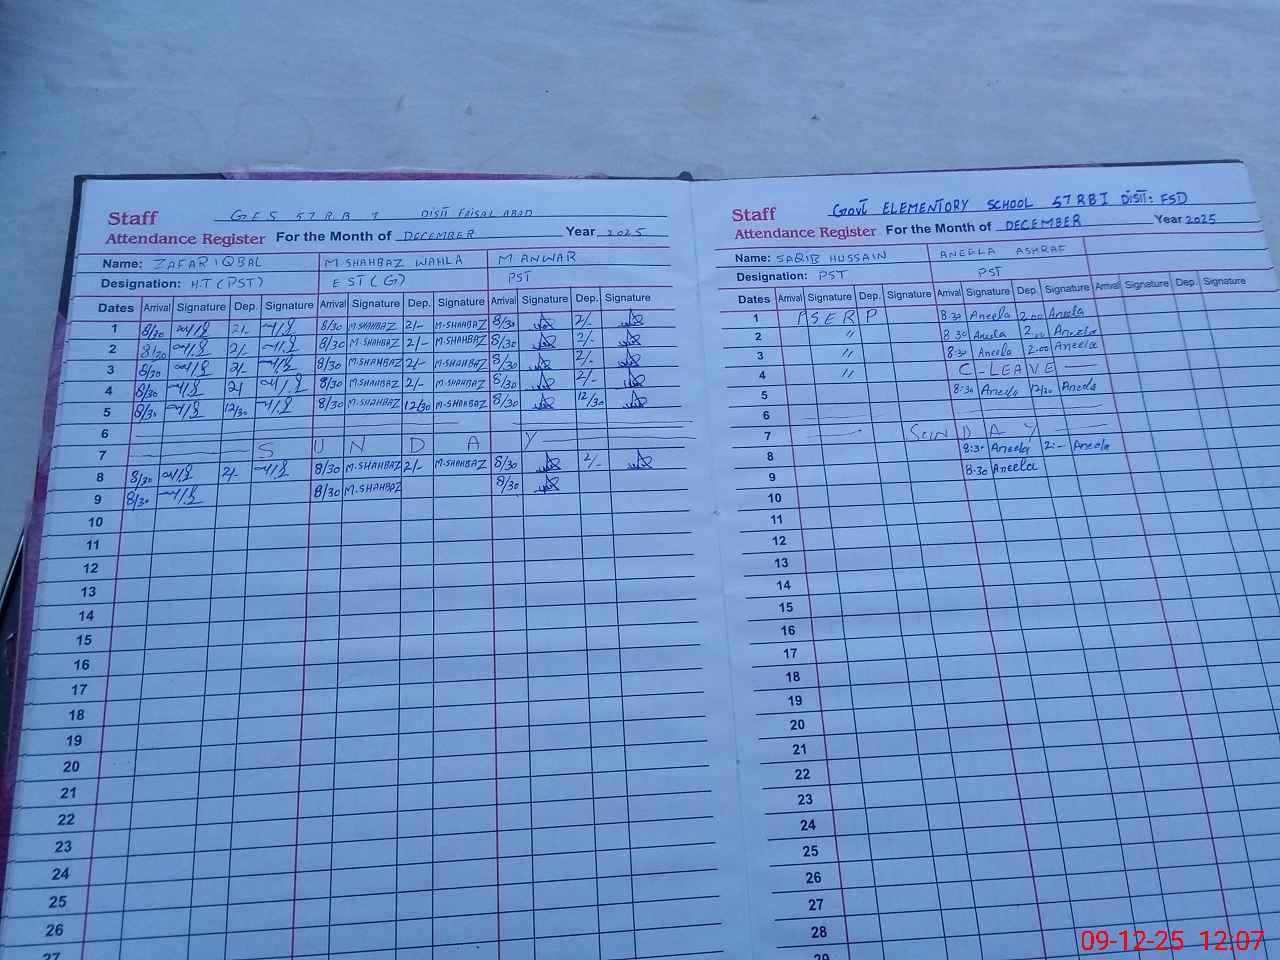 Staff GES 57 RB 1 DISTT FAISALABAD
Attendance Register For the Month of DECEMBER Year 2025
Name: ZAFAR IQBAL M.SHAHBAZ WAHLA M ANWAR
Designation: H.T (PST) EST (G) PST
Dates Arrival Signature Dep. Signature Arrival Signature Dep. Signature Arrival Signature Dep. Signature
1 8/30 2/- 8/30 M.SHAHBAZ 2/- M.SHAHBAZ 8/30 2/-
2 8/30 2/- 8/30 M.SHAHBAZ 2/- M.SHAHBAZ 8/30 2/-
3 8/30 2/- 8/30 M.SHAHBAZ 2/- M.SHAHBAZ 8/30 2/-
4 8/30 2/ 8/30 M.SHAHBAZ 2/- M.SHAHBAZ 8/30 2/-
5 8/30 12/30 8/30 M.SHAHBAZ 12/30 M.SHAHBAZ 8/30 12/30
6
7 S U N D A Y
8 8/30 2/- 8/30 M.SHAHBAZ 2/- M.SHAHBAZ 8/30 2/-
9 8/30 8/30 M.SHAHBAZ 8/30
10
11
12
13
14
15
16
17
18
19
20
21
22
23
24
25
26
27
Staff GOVT ELEMENTORY SCHOOL 57 RB I DISTT: FSD
Attendance Register For the Month of DECEMBER Year 2025
Name: SAQIB HUSSAIN ANEELA ASHRAF
Designation: PST PST
Dates Arrival Signature Dep. Signature Arrival Signature Dep. Signature Arrival Signature Dep. Signature
1 PSERP 8:30 Aneela 2:00 Aneela
2 " 8:30 Aneela 2:00 Aneela
3 " 8:30 Aneela 2:00 Aneela
4 " C-LEAVE
5 8:30 Aneela 12/30 Aneela
6
7 SUNDAY
8 8:30 Aneela 2:- Aneela
9 8:30 Aneela
10
11
12
13
14
15
16
17
18
19
20
21
22
23
24
25
26
27
28
29
09-12-25 12:07